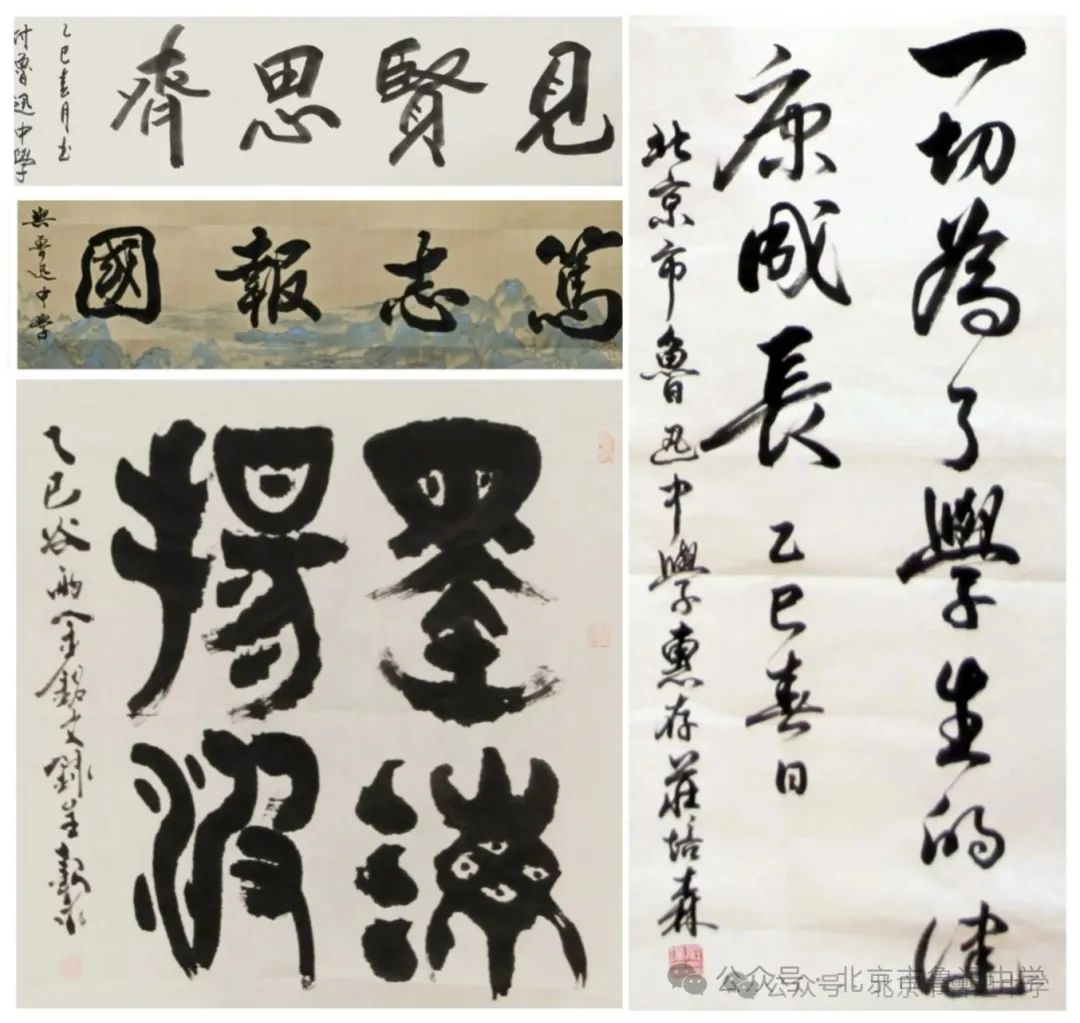 見賢思齊
乙巳春月书
付魯迅中學
篤志報國
與魯迅中学
墨滴
揚波
乙巳谷雨
一切為了學生的健
康成長 乙巳春日
北京市魯迅中學惠存莊培森
公众号·北京市鲁迅中学
公众号·北京市鲁迅中学